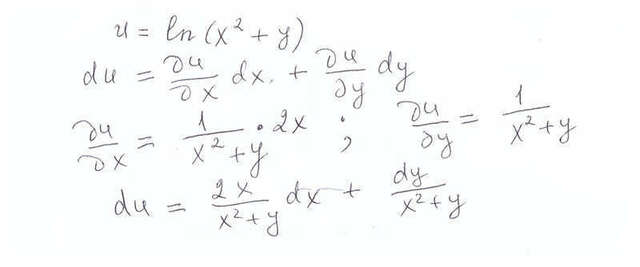 u = ln(x² + y)
du = ∂u/∂x dx + ∂u/∂y dy
∂u/∂x = 1/(x² + y) · 2x ; ∂u/∂y = 1/(x² + y)
du = 2x/(x² + y) dx + dy/(x² + y)